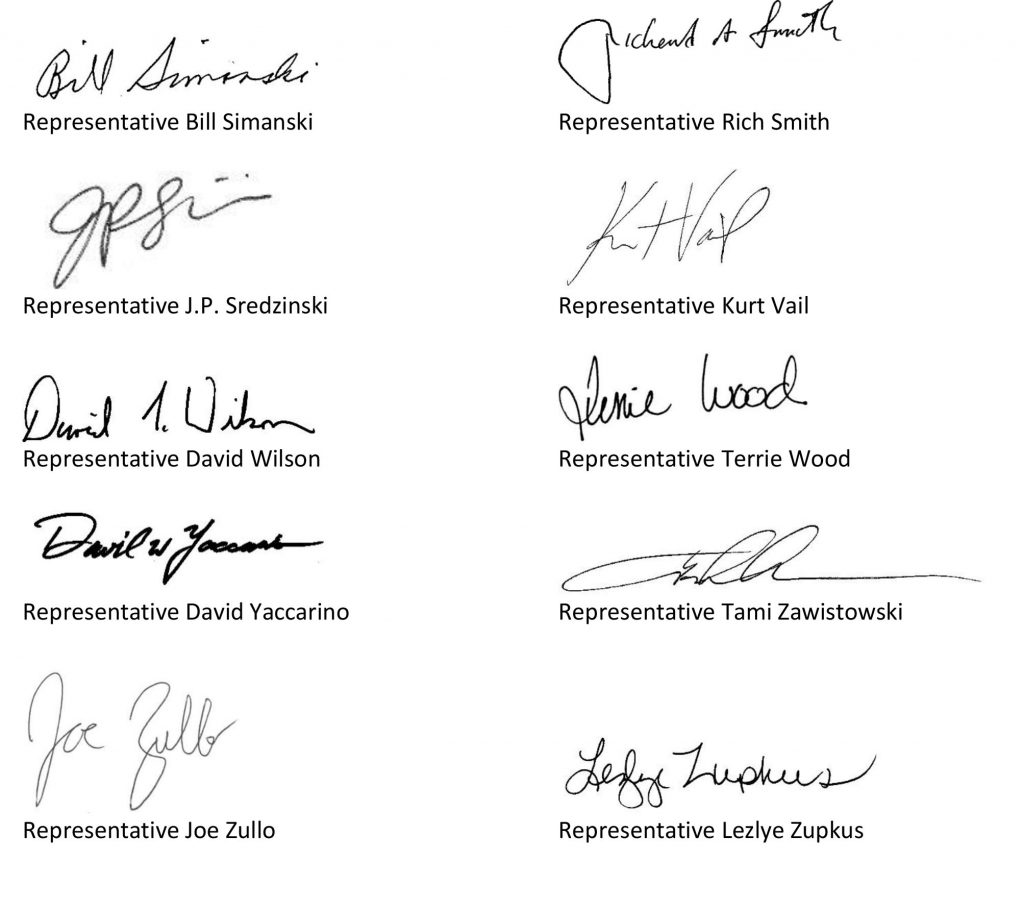 Bill Simanski
Richard A Smith
Representative Bill Simanski
Representative Rich Smith
JP
Kurt Vail
Representative J.P. Sredzinski
Representative Kurt Vail
David T. Wilson
Terrie Wood
Representative David Wilson
Representative Terrie Wood
David W Yaccarino
Representative David Yaccarino
Representative Tami Zawistowski
Joe Zullo
Lezlye Zupkus
Representative Joe Zullo
Representative Lezlye Zupkus